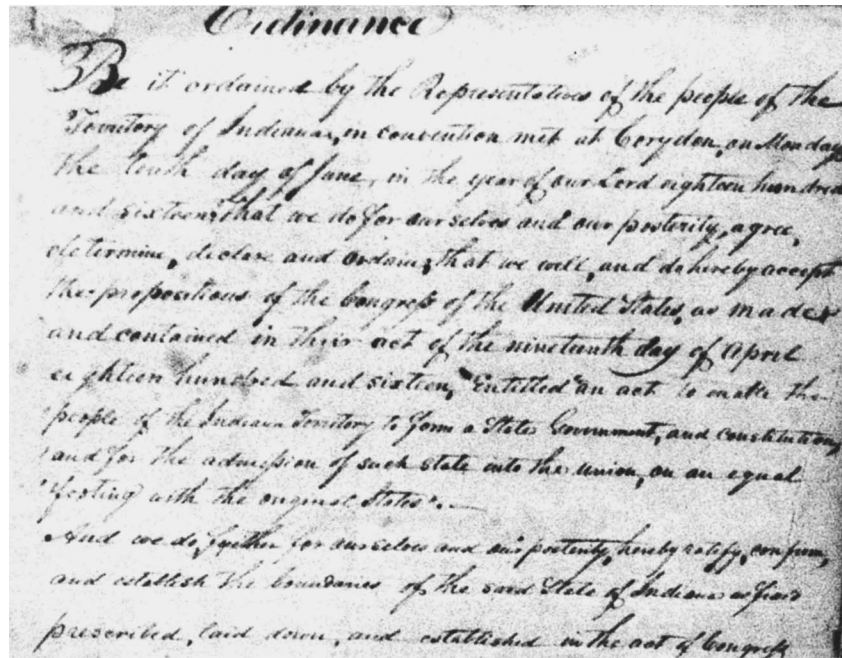 Ordinance
Be it ordained by the Representatives of the people of the
Territory of Indiana, in convention met at Corydon, on Monday
the tenth day of June, in the year of our Lord eighteen hundred
and sixteen, that we do for ourselves and our posterity, agree,
determine, declare and ordain, that we will, and do hereby accept
the propositions of the Congress of the United States, as made &
and contained in their act of the nineteenth day of April
eighteen hundred and sixteen, "Entitled "an act to enable the
people of the Indiana Territory to form a State Government, and constitution,
and for the admission of such state into the union, on an equal
footing with the original States".
And we do, further for ourselves and our posterity, hereby ratify, confirm,
and establish the boundaries of the said State of Indiana as fixed
prescribed, laid down, and established in the act of Congress